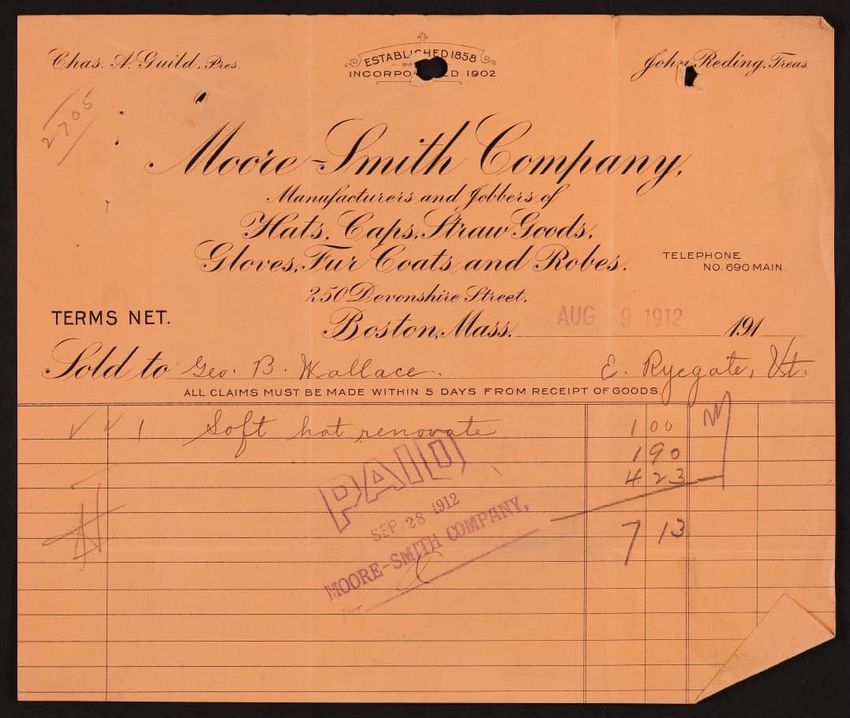 Chas. A. Guild, Pres.
ESTABLISHED 1858
INCORPO D 1902
John Reding, Treas.
2705
Moore-Smith Company,
Manufacturers and Jobbers of
Hats, Caps, Straw Goods,
Gloves, Fur Coats and Robes.
TELEPHONE
NO. 690 MAIN.
250 Devonshire Street,
TERMS NET.
Boston, Mass. AUG 9 1912 191
Sold to Geo. B. Wallace. E. Ryegate, Vt.
ALL CLAIMS MUST BE MADE WITHIN 5 DAYS FROM RECEIPT OF GOODS.
1 Soft hat renovate 1 00
1 90
4 23
7 13
PAID
SEP 28 1912
MOORE-SMITH COMPANY,
Per